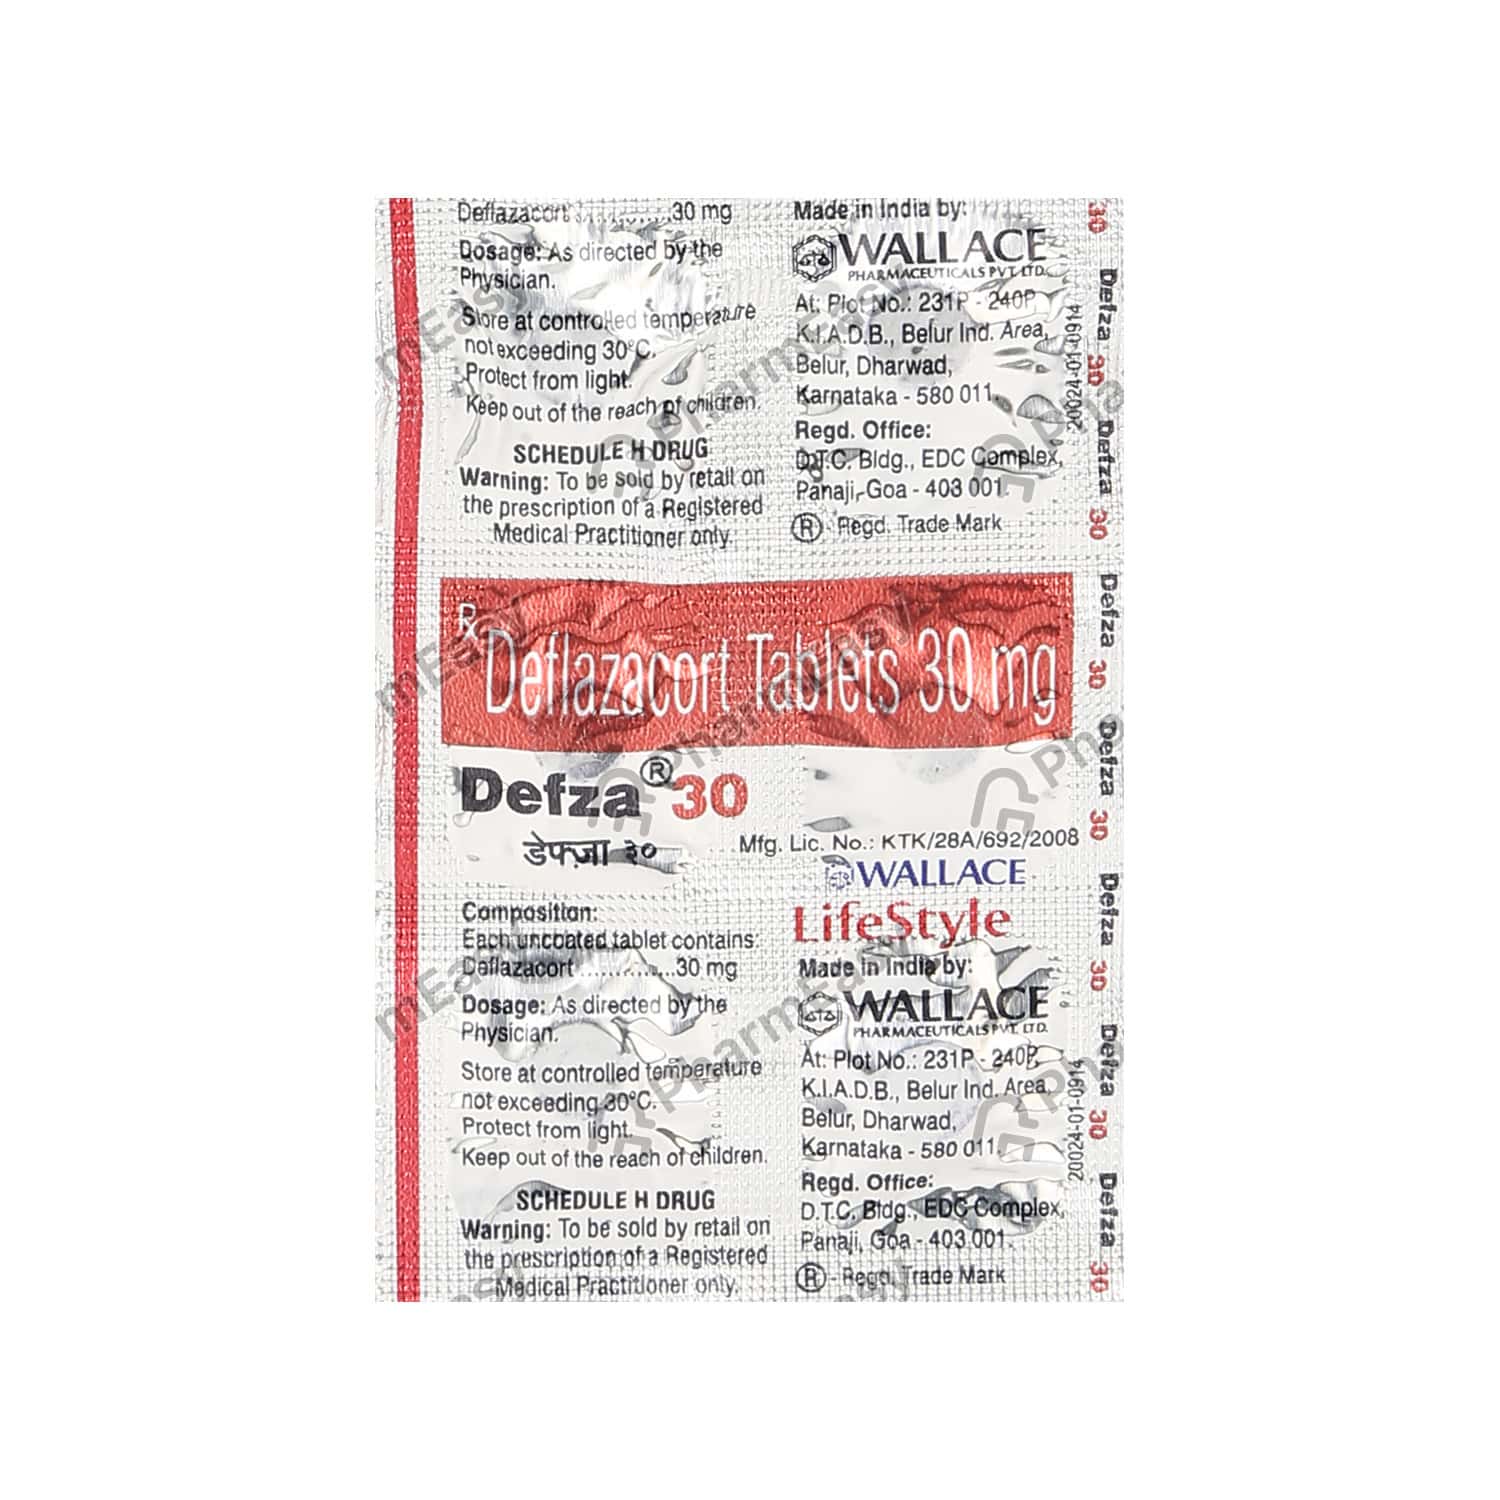 Deflazacort..............30 mg
Dosage: As directed by the
Physician.
Store at controlled temperature
not exceeding 30°C.
Protect from light.
Keep out of the reach of children.
SCHEDULE H DRUG
Warning: To be sold by retail on
the prescription of a Registered
Medical Practitioner only.
Made in India by:
WALLACE
PHARMACEUTICALS PVT. LTD.
At: Plot No.: 231P - 240P,
K.I.A.D.B., Belur Ind. Area,
Belur, Dharwad,
Karnataka - 580 011.
Regd. Office:
D.T.C. Bldg., EDC Complex,
Panaji, Goa - 403 001.
® - Regd. Trade Mark
20024-01-0914
Rx Deflazacort Tablets 30 mg
Defza® 30
डेफ्ज़ा ३०
Mfg. Lic. No.: KTK/28A/692/2008
WALLACE
LifeStyle
Composition:
Each uncoated tablet contains:
Deflazacort..............30 mg
Dosage: As directed by the
Physician.
Store at controlled temperature
not exceeding 30°C.
Protect from light.
Keep out of the reach of children.
SCHEDULE H DRUG
Warning: To be sold by retail on
the prescription of a Registered
Medical Practitioner only.
Made in India by:
WALLACE
PHARMACEUTICALS PVT. LTD.
At: Plot No.: 231P - 240P,
K.I.A.D.B., Belur Ind. Area,
Belur, Dharwad,
Karnataka - 580 011.
Regd. Office:
D.T.C. Bldg., EDC Complex,
Panaji, Goa - 403 001.
® - Regd. Trade Mark
20024-01-0914
30 Defza 30 Defza 30 Defza 30 Defza 30 Defza 30 Defza 30 Defza 30
PharmEasy
PharmEasy
PharmEasy